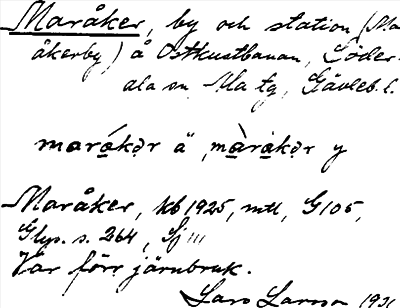 Maråker, by och station (Ma
åkerby) å Ostkustbanan, Söder-
ala sn, Ala tg, Gävleb. l.
maråkər ä, màrakər y
Maråker, kb 1925, mtl, G105,
Glyp. s. 264, Sj III
Var förr järnbruk.
Lars Larsson 193